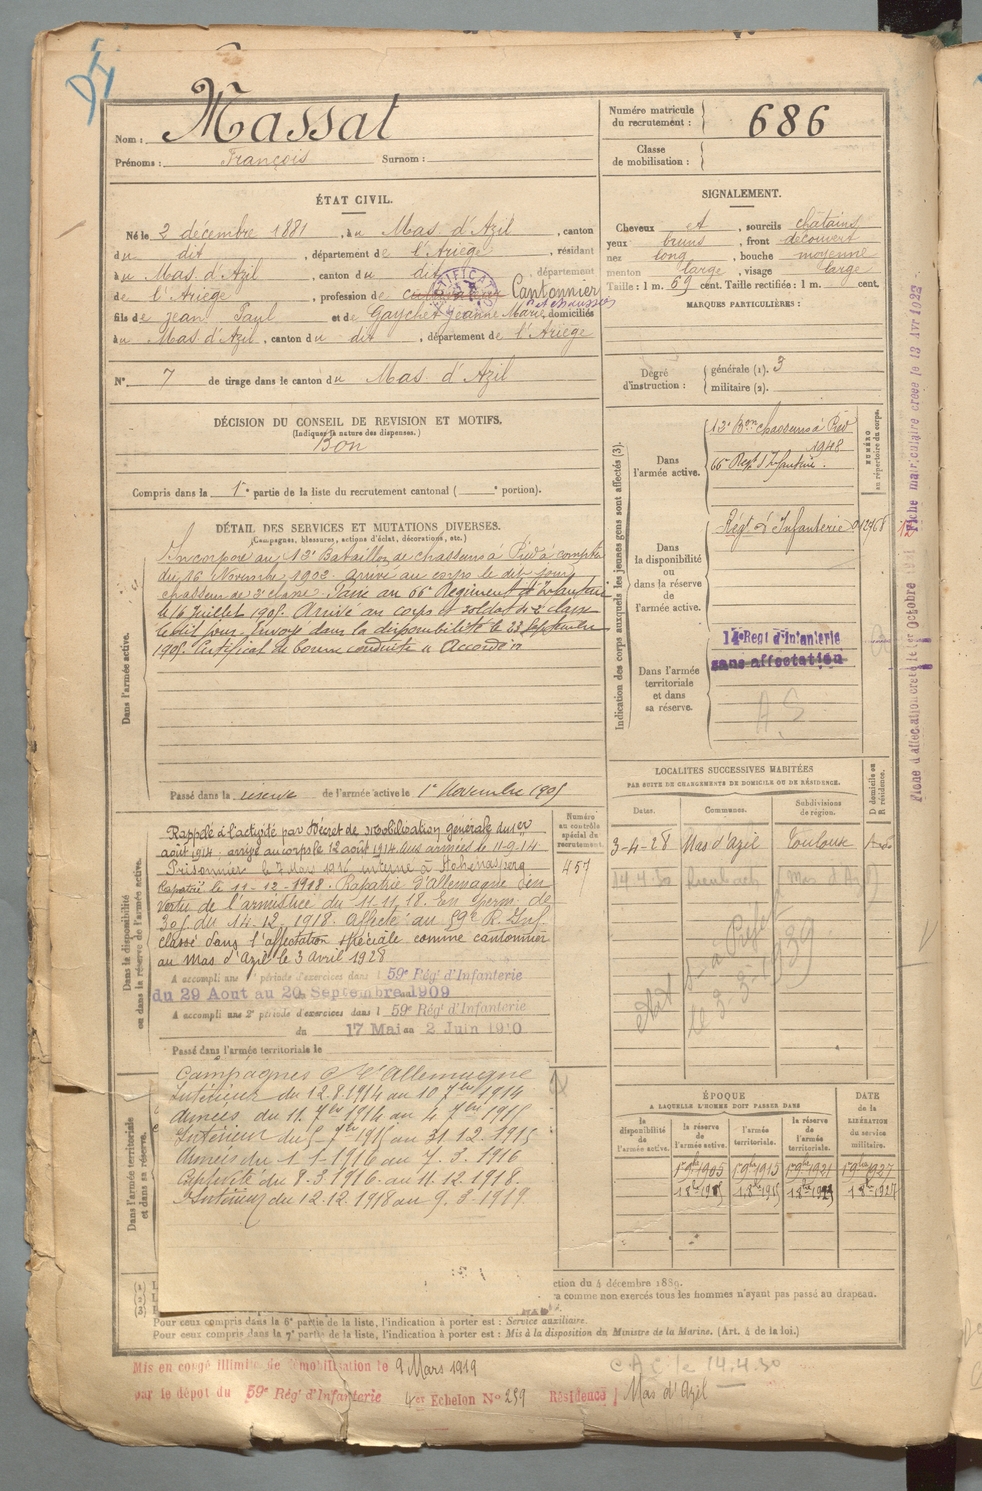 Nom : Massat
Prénoms : François Surnom :
Numéro matricule du recrutement : 686
Classe de mobilisation :
ÉTAT CIVIL.
Né le 2 décembre 1881, à u Mas d'Azil, canton
du dit, département de l'Ariège, résidant
à u Mas d'Azil, canton du dit département
de l'Ariège, profession de Cantonnier
fils de Jean Paul et de Gaychet Jeanne Marie, domiciliés
à u Mas d'Azil, canton du dit, département de l'Ariège
N° 7 de tirage dans le canton du Mas d'Azil
SIGNALEMENT.
Cheveux et, sourcils châtains
yeux bruns, front découvert
nez long, bouche moyenne
menton large, visage large
Taille : 1 m. 69 cent. Taille rectifiée : 1 m. cent.
MARQUES PARTICULIÈRES :
Degré d'instruction : générale (1). 3
militaire (2).
DÉCISION DU CONSEIL DE REVISION ET MOTIFS.
(Indiquer la nature des dispenses.)
Bon
Compris dans la 1e partie de la liste du recrutement cantonal ( e portion).
DÉTAIL DES SERVICES ET MUTATIONS DIVERSES.
(Campagnes, blessures, actions d'éclat, décorations, etc.)
Dans l'armée active.
Incorporé au 13e Bataillon de chasseurs à Pied à compter
du 16 Novembre 1902. Arrivé au corps le dit jour
chasseur de 2e classe. Passé au 66e Régiment d'Infanterie
le 16 Juillet 1905. Arrivé au corps et soldat de 2e classe
le dit jour. Envoyé dans la disponibilité le 23 Septembre
1905. Certificat de bonne conduite "Accordé"
Passé dans la réserve de l'armée active le 1er Novembre 1905
Indication des corps auxquels les jeunes gens sont affectés (3).
NUMÉRO au répertoire du corps.
Dans l'armée active.
13e Bon chasseurs à Pied
1948
66e Regt d'Infanterie.
Dans la disponibilité ou dans la réserve de l'armée active.
Régt d'Infanterie
Dans l'armée territoriale et dans sa réserve.
14e Regt d'Infanterie
sans affectation
A S
LOCALITÉS SUCCESSIVES HABITÉES
PAR SUITE DE CHANGEMENTS DE DOMICILE OU DE RÉSIDENCE.
Dates. Communes. Subdivisions de région. D domicile ou R résidence.
3-4-28 Mas d'Azil Toulouse
14.4.30
Dans la disponibilité ou dans la réserve de l'armée active.
Numéro au contrôle spécial du recrutement.
457
Rappelé à l'activité par Décret de Mobilisation générale du 1er
août 1914. arrivé au corps le 12 août 1914. Aux armées le 11-9-14
Prisonnier le 7 Mars 1916 interné à Hohenasperg
Rapatrié le 11-12-1918. Rapatrié d'Allemagne en
vertu de l'armistice du 11.11.18. En perm. de
30 j. du 14.12.1918. Affecté au 59e R. Inf.
classé dans l'affectation spéciale comme cantonnier
au Mas d'Azil le 3 avril 1928
A accompli une 1e période d'exercices dans l 59e Rég' d'Infanterie
du 29 Aout au 20 Septembre 1909
A accompli une 2e période d'exercices dans l 59e Rég' d'Infanterie
du 17 Mai au 2 Juin 1910
Passé dans l'armée territoriale le
Dans l'armée territoriale et dans sa réserve.
Campagnes C/ l'Allemagne
Intérieur du 12.8.1914 au 10 7bre 1914
Armées du 11. 7bre 1914 au 4 7bre 1915
Intérieur du 5 7bre 1915 au 31.12.1915
Armées du 1-1-1916 au 7.3.1916
Captivité du 8.3.1916 au 11.12.1918.
Intérieur du 12.12.1918 au 9.3.1919
ÉPOQUE
A LAQUELLE L'HOMME DOIT PASSER DANS
la disponibilité de l'armée active. la réserve de l'armée active. l'armée territoriale. la réserve de l'armée territoriale.
DATE de la LIBÉRATION du service militaire.
1er 9bre 1905 1er 9bre 1915 1er 9bre 1921 1er 9bre 1927
ction du 4 décembre 1889.
a comme non exercés tous les hommes n'ayant pas passé au drapeau.
Pour ceux compris dans la 6e partie de la liste, l'indication à porter est : Service auxiliaire.
Pour ceux compris dans la 7e partie de la liste, l'indication à porter est : Mis à la disposition du Ministre de la Marine. (Art. 4 de la loi.)
Mis en congé illimité de démobilisation le 9 Mars 1919
par le dépôt du 59e Rég' d'Infanterie 4er Echelon N° 259 Résidence Mas d'Azil
le 14.4.30
Fiche matriculaire créée le 13 Avr 1923